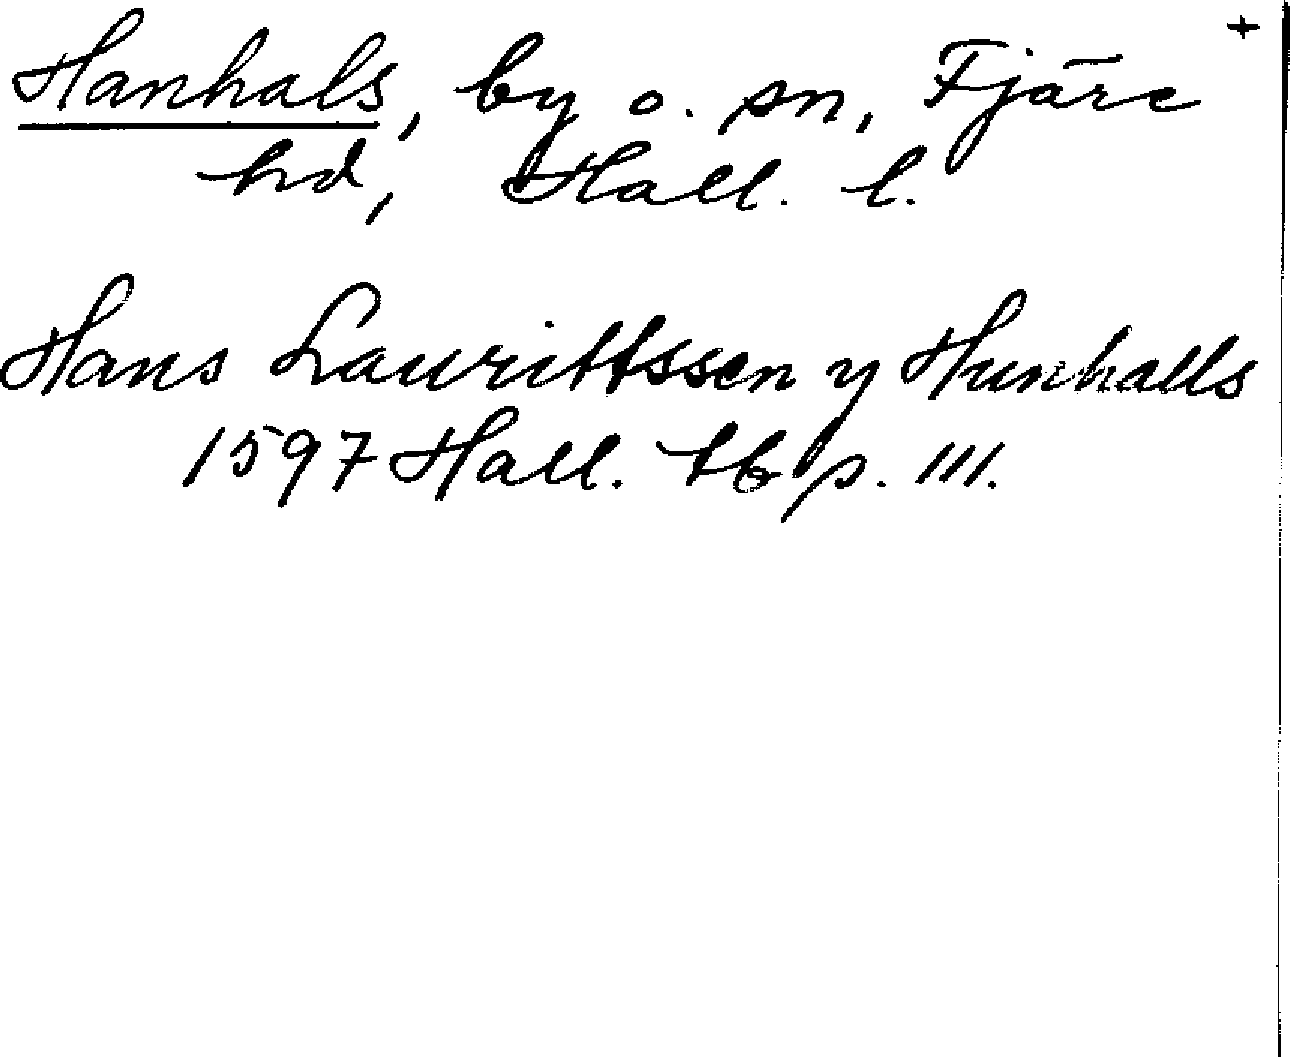 +
Hanhals, by o. sn, Fjäre
hd, Hall. l.
Hans Laurittssen y Hunhalls
1597 Hall. tb p. 111.